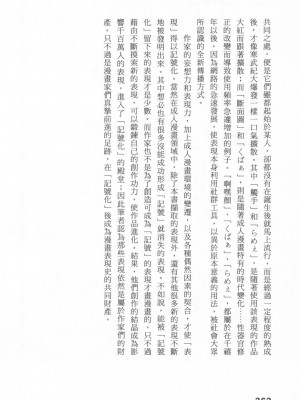 共同之處，便是它們雖都起始於某人，卻都沒有在誕生後就馬上流行，而是經過一定程度的熟成
後，才像寒武紀大爆發一樣一口氣擴散，其中「觸手」和「らめぇ」，是隨著使用該表現的作品
大紅而跟著擴散，而「斷面圖」和「くぱぁ」則是隨著成人漫畫特有的時代變化──性器官修
正的改變而導致使用頻率急遽增加的例子。「啊嘿顏」、「くぱぁ」、「らめぇ」，都屬於在千禧
年以後，因為網路的急速普及，使表現本身利用社群工具，以異於原本意義的用法，被社會大眾
所認識的全新傳播方式。
作家的妄想力和表現力，加上成人漫畫環境的變遷，以及各種偶然因素的契合，才使「表
現」得以記號化。當然在成人漫畫領域中，除了本書擷取的表現外，還有其他很多新的表現不斷
地被發明出來，其中想必也有很多沒能成功形成「記號」就消失的表現，不如說，能被「記號
化」留下來的表現才是少數，而作家也不是為了創造可成為「記號」的表現才畫漫畫的，只不過
藉由不斷摸索新的表現，可以鍛鍊自己的創作功力，使作品進化。結果，他們創作的結晶成為影
響千百萬人的表現，進入了「記號化」的殿堂；因此筆者認為那些表現依然是屬於作家們的財
產，只不過是漫畫家們真摯前進的足跡，在「記號化」後成為漫畫表現史的共同財產。